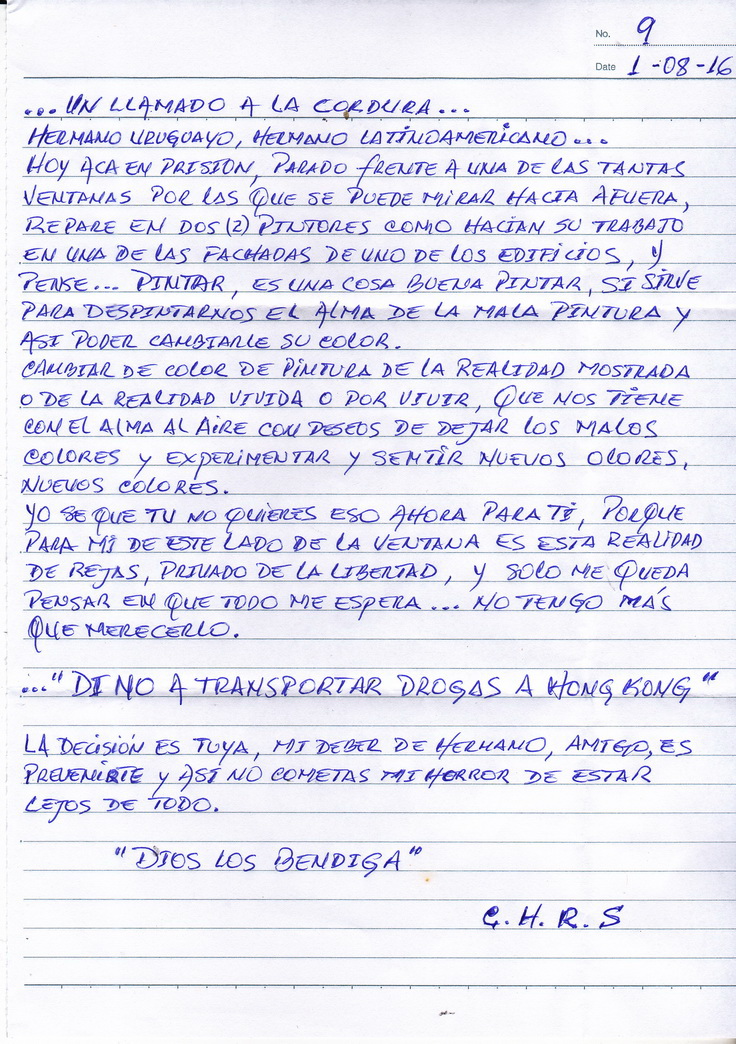 No. 9
Date 1-08-16
... UN LLAMADO A LA CORDURA...
HERMANO URUGUAYO, HERMANO LATINOAMERICANO...
HOY ACA EN PRISIÓN, PARADO FRENTE A UNA DE LAS TANTAS
VENTANAS POR LAS QUE SE PUEDE MIRAR HACIA AFUERA,
REPARE EN DOS (2) PINTORES COMO HACIAN SU TRABAJO
EN UNA DE LAS FACHADAS DE UNO DE LOS EDIFICIOS, Y
PENSE... PINTAR, ES UNA COSA BUENA PINTAR, SI SIRVE
PARA DESPINTARNOS EL ALMA DE LA MALA PINTURA Y
ASI PODER CAMBIARLE SU COLOR.
CAMBIAR DE COLOR DE PINTURA DE LA REALIDAD MOSTRADA
O DE LA REALIDAD VIVIDA O POR VIVIR, QUE NOS TIENE
CON EL ALMA AL AIRE CON DESEOS DE DEJAR LOS MALOS
COLORES Y EXPERIMENTAR Y SENTIR NUEVOS OLORES,
NUEVOS COLORES.
YO SE QUE TU NO QUIERES ESO AHORA PARA TI, PORQUE
PARA MI DE ESTE LADO DE LA VENTANA ES ESTA REALIDAD
DE REJAS, PRIVADO DE LA LIBERTAD, Y SOLO ME QUEDA
PENSAR EN QUE TODO ME ESPERA... NO TENGO MÁS
QUE MERECERLO.
..."DI NO A TRANSPORTAR DROGAS A HONG KONG"
LA DECISIÓN ES TUYA, MI DEBER DE HERMANO, AMIGO, ES
PREVENIRTE Y ASI NO COMETAS MI HERROR DE ESTAR
LEJOS DE TODO.
"DIOS LOS BENDIGA"
G.H.R.S